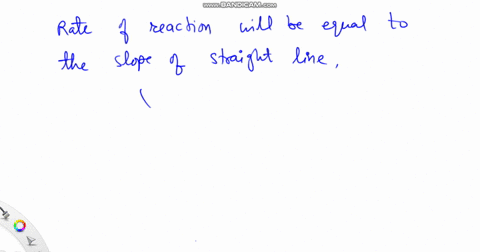 WWW.BANDICAM.COM
Rate of reaction will be equal to
the slope of straight line,